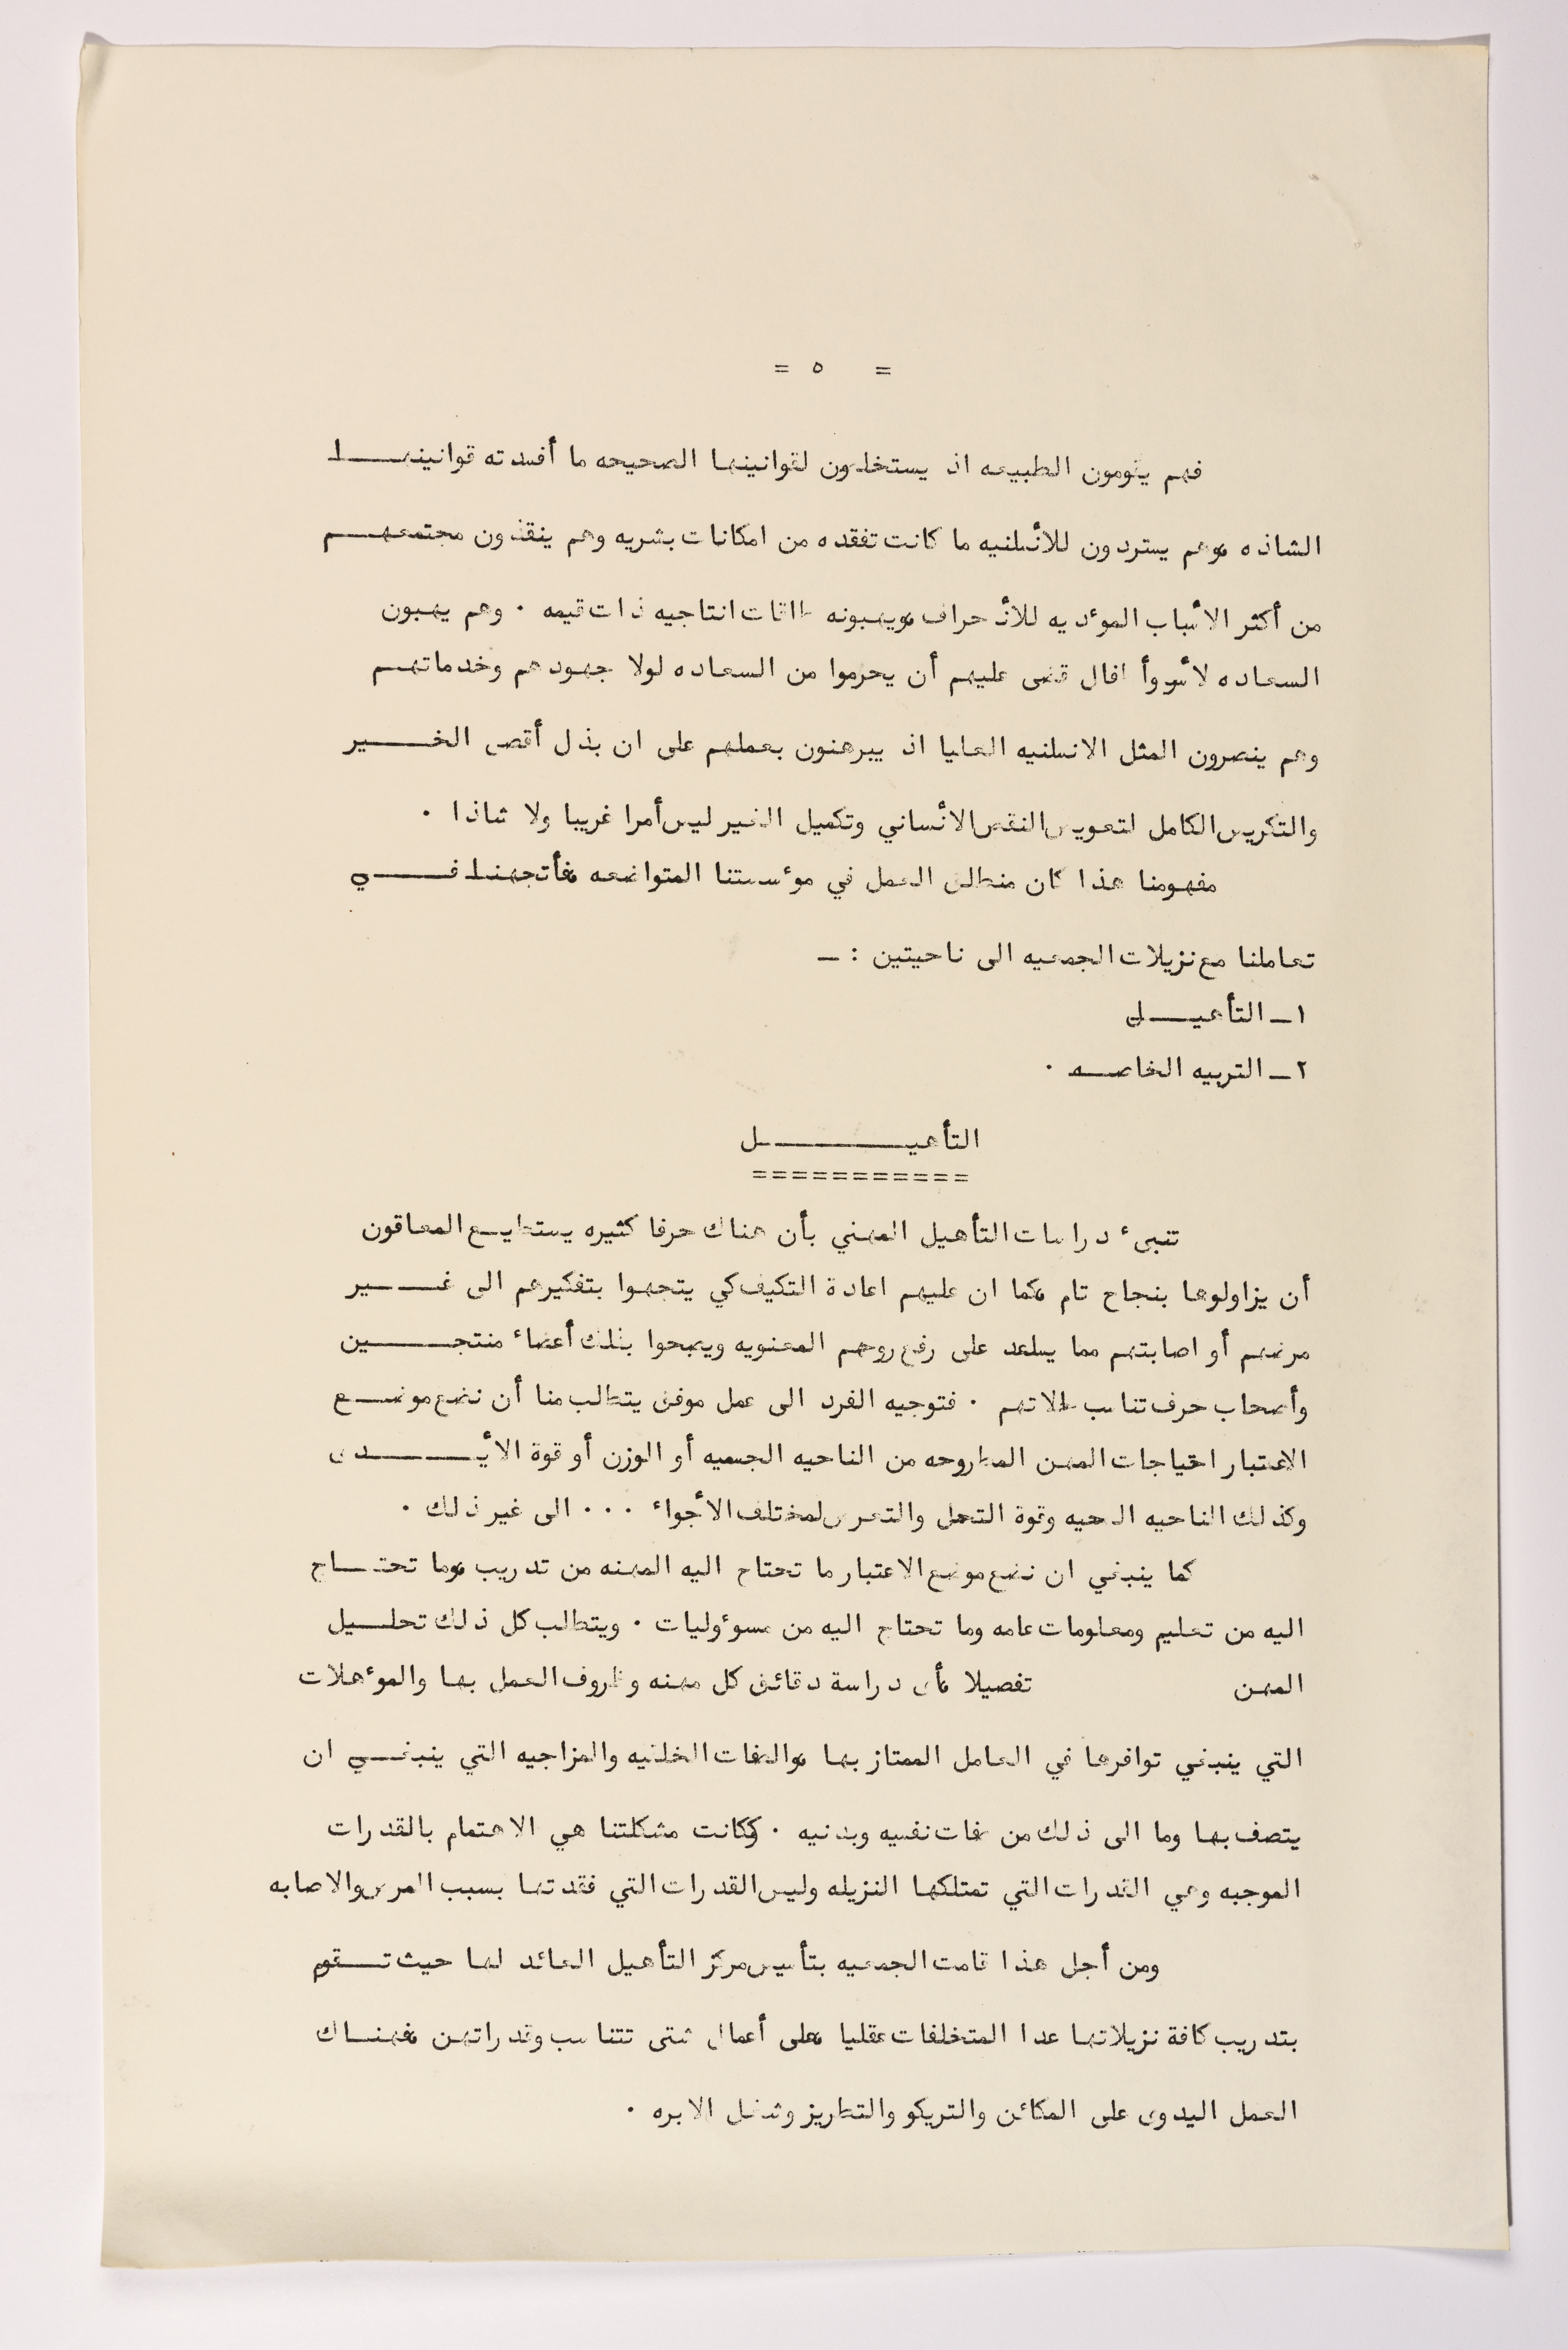 = ٥ =
فهم يقومون الطبيعه اذ يستخلصون لقوانينها الصحيحه ما أفسدته قوانينهـــــا
الشاذه ،وهم يستردون للأنسانيه ما كانت تفقده من امكانات بشريه وهم ينقذون مجتمعهـــم
من أكثر الأسباب المؤديه للأنحراف ،ويهبونه طاقات انتاجيه ذات قيمه . وهم يهبون
السعاده لأسر وأطفال قضى عليهم أن يحرموا من السعاده لولا جهودهم وخدماتهــم
وهم ينصرون المثل الانسانيه العليا اذ يبرهنون بعملهم على ان بذل أقصى الخـــــير
والتكريس الكامل لتعويض النقص الأنساني وتكميل الغير ليس أمرا غريبا ولا شاذا .
مفهومنا هذا كان منطلق العمل في مؤسستنا المتواضعه ،فأتجهنـا فـــــي
تعاملنا مع نزيلات الجمعيه الى ناحيتين : ـ
١ـ التأهيــــل
٢ـ التربيه الخاصــه .
التأهيــــــــــــل
===========
تنبىء دراسات التأهيل المهني بأن هناك حرفا كثيره يستطيــع المعاقون
أن يزاولوها بنجاح تام ،كما ان عليهم اعادة التكيف كي يتجهوا بتفكيرهم الى غـــــير
مرضهم أو اصابتهم مما يساعد على رفع روحهم المعنويه ويصبحوا بذلك أعضاء منتجـــــين
وأصحاب حرف تناسب حالاتهم . فتوجيه الفرد الى عمل موفق يتطلب منا أن نضع موضــع
الاعتبار احتياجات المهن المطروحه من الناحيه الجسميه أو الوزن أو قوة الأيـــــدى
وكذلك الناحيه الصحيه وقوة التحمل والتعرض لمختلف الأجواء ... الى غير ذلك .
كما ينبغي ان نضع موضع الاعتبار ما تحتاج اليه المهنه من تدريب ،وما تحتـــاج
اليه من تعليم ومعلومات عامه وما تحتاج اليه من مسؤوليات . ويتطلب كل ذلك تحلـــيل
المهن تفصيلا ،أى دراسة دقائق كل مهنه وظروف العمل بها والمؤهلات
التي ينبغي توافرها في العامل الممتاز بها ،والصفات الخلقيه والمزاجيه التي ينبغـــي ان
يتصف بها وما الى ذلك من صفات نفسيه وبدنيه . وكانت مشكلتنا هي الاهتمام بالقدرات
الموجبه وهي القدرات التي تمتلكها النزيله وليس القدرات التي فقدتها بسبب المرض والاصابه
ومن أجل هذا قامت الجمعيه بتأسيس مركز التأهيل العائد لها حيث تـــقوم
بتدريب كافة نزيلاتها عدا المتخلفات عقليا ،على أعمال شتى تتناسب وقدراتهن ،فهنــاك
العمل اليدوى على المكائن والتريكو والتطريز وشغل الابره .